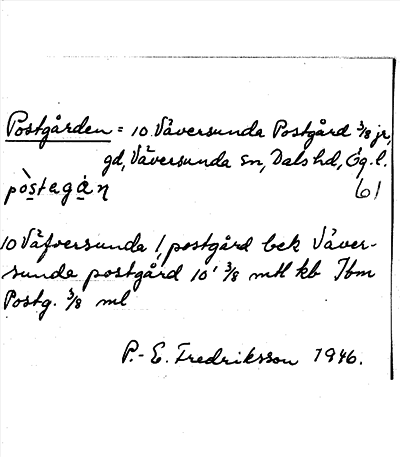 Postgården = 10 Väversunda Postgård 3/8 jr,
gd, Väversunda sn, Dals hd, Ög. l.
pòstagá̱ṇ 61
10 Väfversunda /, postgård bek Väver-
sunda postgård 10' 3/8 mtl kb Jbm
Postg. 3/8 ml
P.-E. Fredriksson 1946.